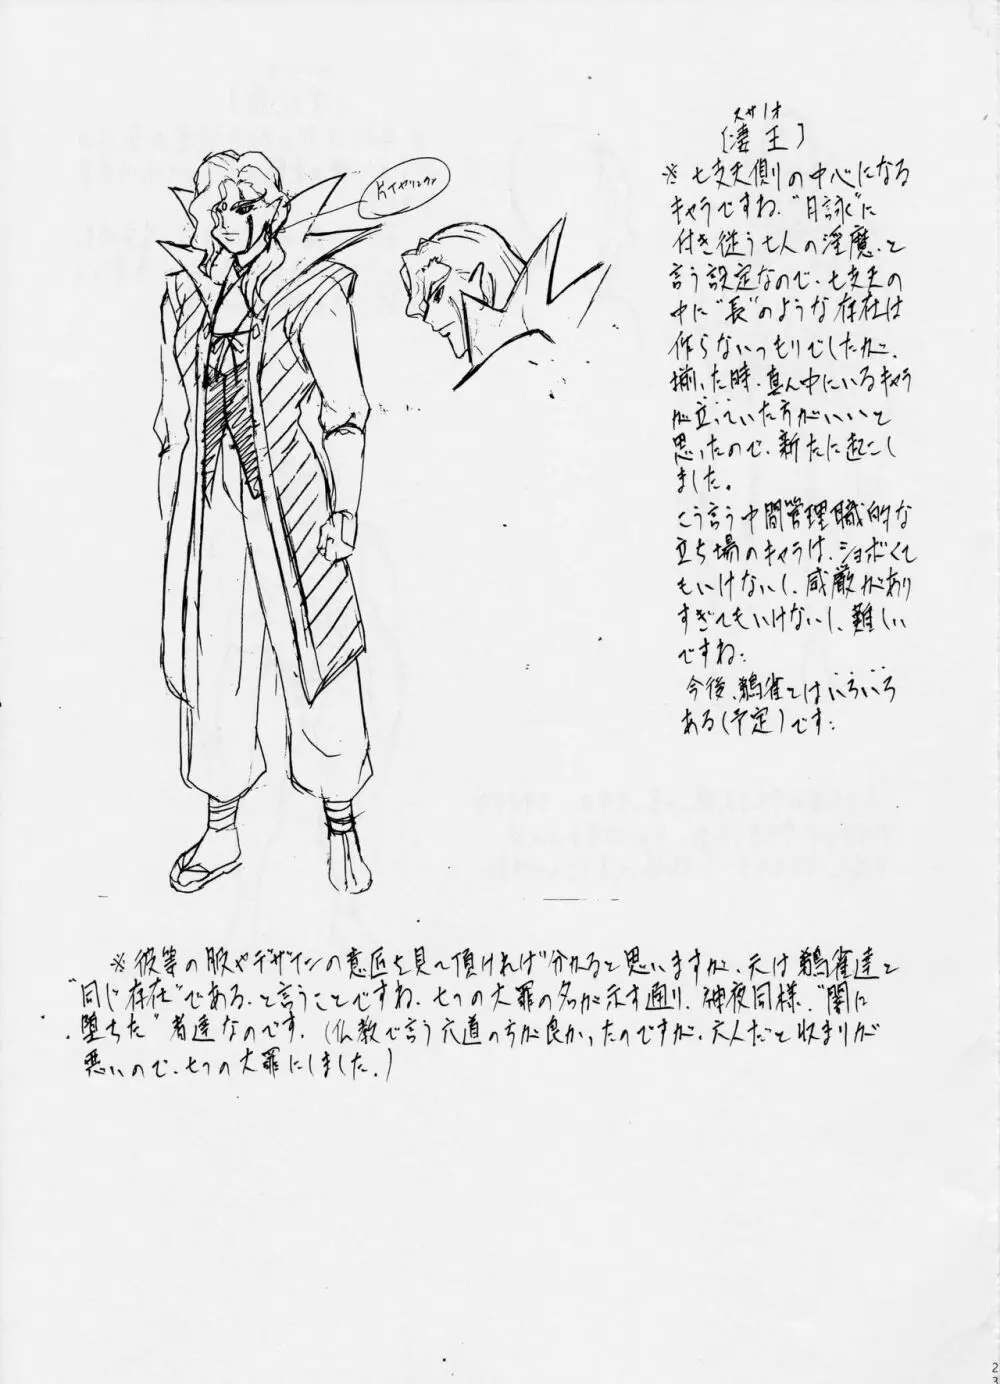 スサノオ
[凄王]
※七支夫側の中心になる
キャラですね。“月詠”に
付き従う七人の淫魔、と
言う設定なので、七支夫の
中に“長”のような存在は
作らないつもりでしたが、
揃った時、真ん中にいるキャラ
が立っていた方がいいと
思ったので、新たに起こし
ました。
こう言う中間管理職的な
立ち場のキャラは、ショボくて
もいけないし、威厳があり
すぎてもいけないし、難しい
ですね。
今後、鵺雀とはいろいろ
ある(予定)です。
片イヤリング
※彼等の服やデザインの意匠を見て頂ければ分かると思いますが、元は鵺雀達と
“同じ存在”である、と言うことですね。七つの大罪の名が示す通り、神夜同様、“闇に
堕ちた”者達なのです。(仏教で言う六道の方が良かったのですが、六人だと収まりが
悪いので、七つの大罪にしました。)
23